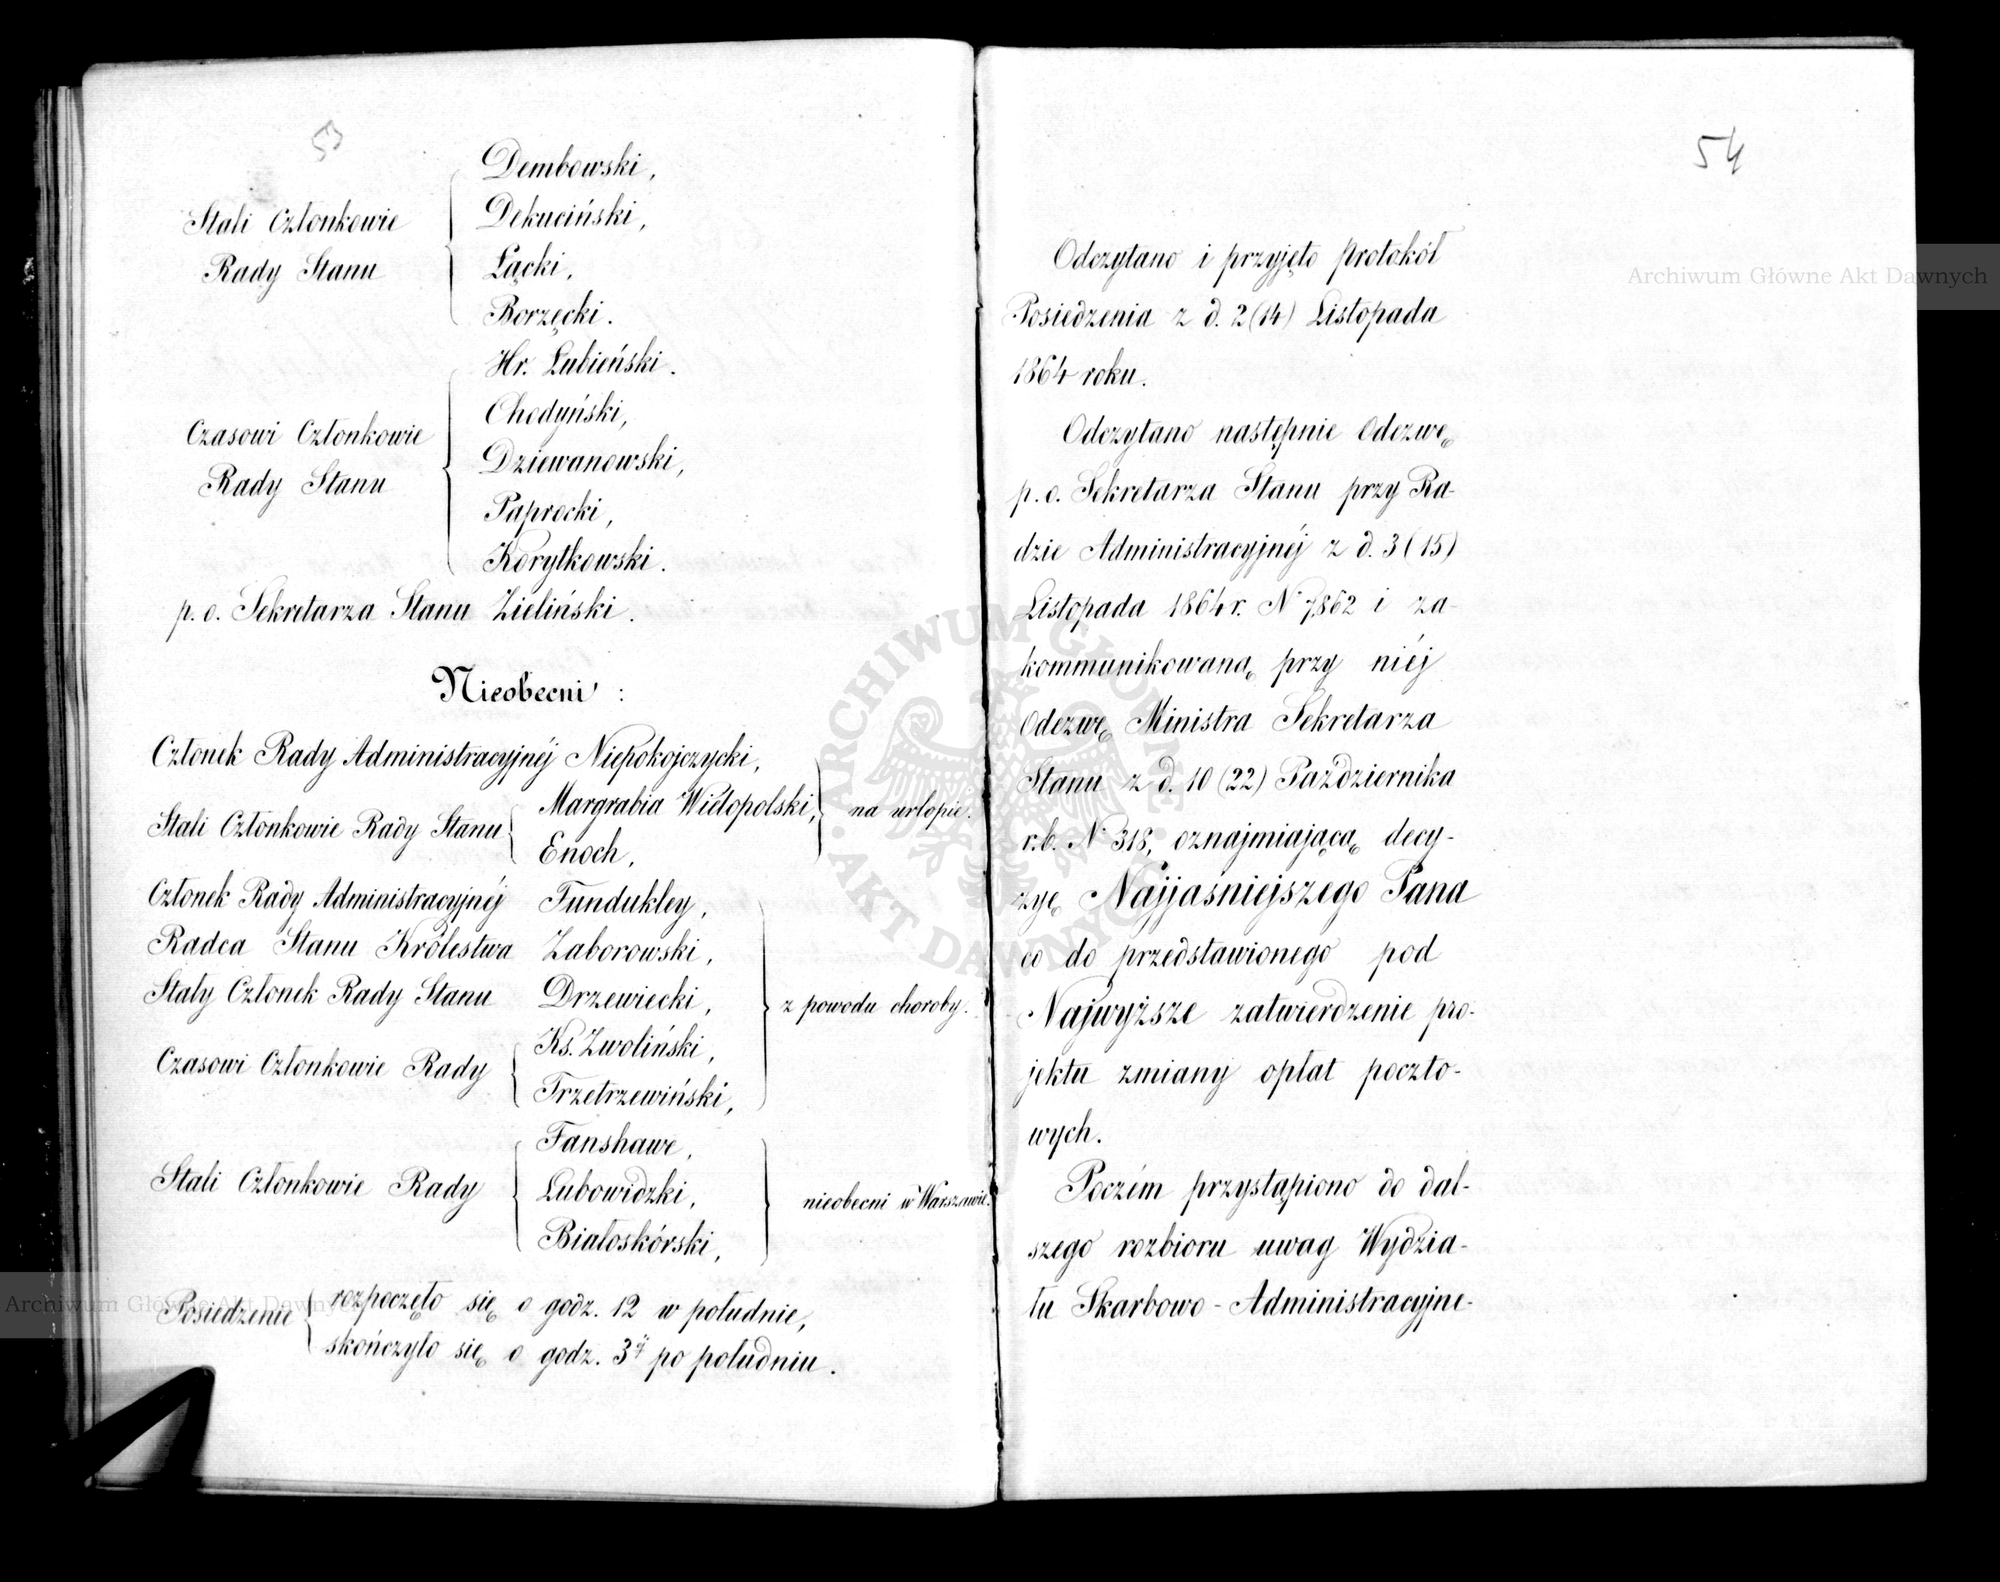 53
Stali Członkowie
Rady Stanu
Dembowski,
Dekuciński,
Łącki,
Borzęcki.
Czasowi Członkowie
Rady Stanu
Hr. Łubieński.
Chodyński,
Dziewanowski,
Paprocki,
Korytkowski.
p. o. Sekretarza Stanu Zieliński.
Nieobecni :
Członek Rady Administracyjnéj Niepokojczycki,
Stali Członkowie Rady Stanu
Margrabia Wielopolski,
Enoch,
na urlopie.
Członek Rady Administracyjnéj Fundukley,
Radca Stanu Królestwa Zaborowski,
Stały Członek Rady Stanu Drzewiecki,
Czasowi Członkowie Rady
Ks. Zwoliński,
Trzetrzewiński,
z powodu choroby.
Stali Członkowie Rady
Fanshawe,
Lubowidzki,
Białoskórski,
nieobecni w Warszawie.
Posiedzenie
rozpoczęło się o godz. 12 w południe,
skończyło się o godz. 3éj po południu.
54
Odczytano i przyjęto protokół
Posiedzenia z d. 2 (14) Listopada
1864 roku.
Odczytano następnie Odezwę
p. o. Sekretarza Stanu przy Ra-
dzie Administracyjnéj z d. 3 (15)
Listopada 1864 r. N 7,862 i za-
kommunikowaną przy niéj
Odezwę Ministra Sekretarza
Stanu z d. 10 (22) Października
r.b. N 318, oznajmiającą decy-
zyę Najjaśniejszego Pana
co do przedstawionego pod
Najwyższe zatwierdzenie pro-
jektu zmiany opłat poczto-
wych.
Poczém przystąpiono do dal-
szego rozbioru uwag Wydzia-
łu Skarbowo-Administracyjne-
Archiwum Główne Akt Dawnych
Archiwum Główne Akt Dawnych
ARCHIWUM GŁÓWNE AKT DAWNYCH